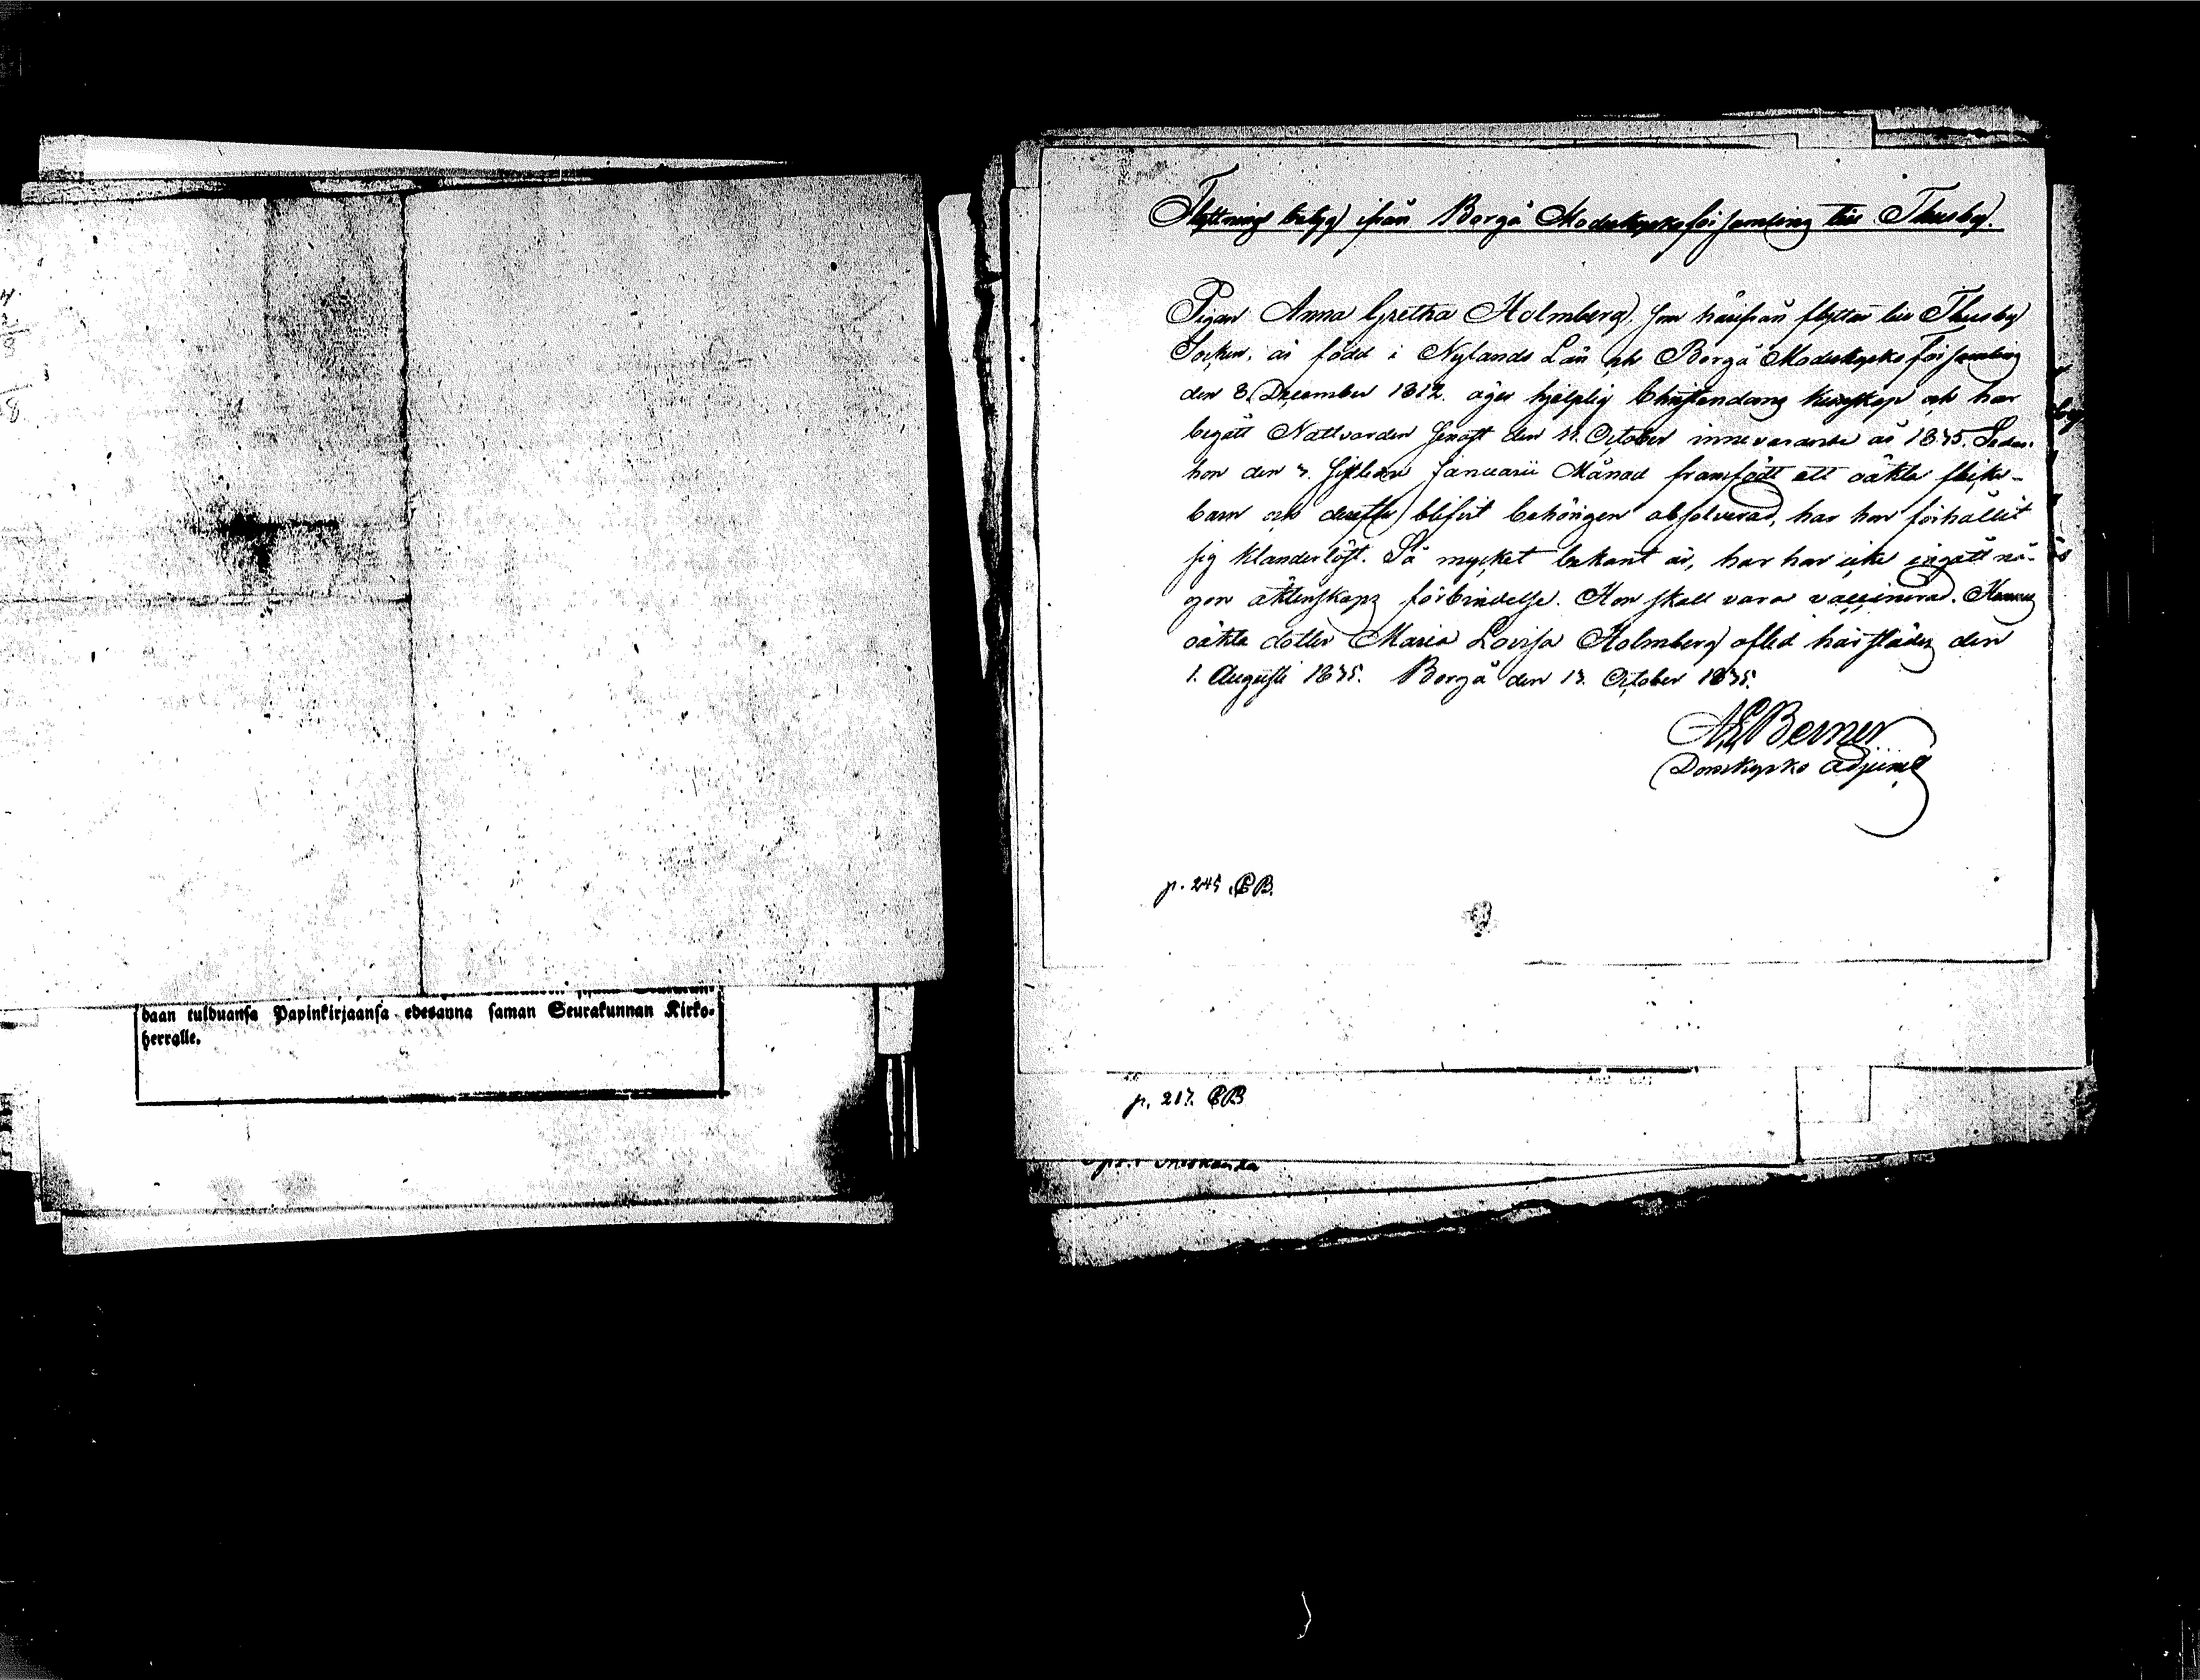 daan tulduansa Papinkirjaansa edesanna saman Seurakunnan Kirko-
herralle.
Flyttnings betyg ifrån Borgå Moderkyrkoförsamling till Thusby.
Pigan Anna Gretha Holmberg, som härifrån flyttar till Thusby
Socken, är född i Nylands Län och Borgå Moderkyrko församling
den 8 December 1812. äger hjelplig Christendoms kunskap och har
begått Nattvarden senast den 11. October innevarande år 1835. Sedan
hon den 3. sistledne Januarii Månad framfödt ett oäkta flicke-
barn och derefter blifvit behörigen absolverad, har hon förhållit
sig klanderlöst. Så mycket bekant är, har hon icke ingått nå-
gon äktenskaps förbindelse. Hon skall vara vaccinerad. Hennes
oäkta dotter Maria Lovisa Holmberg afled härstädes den
1. Augusti 1835. Borgå den 13. October 1835.
A E Berner
Domkyrko Adjunct
p. 245 CB.
p. 217. CB